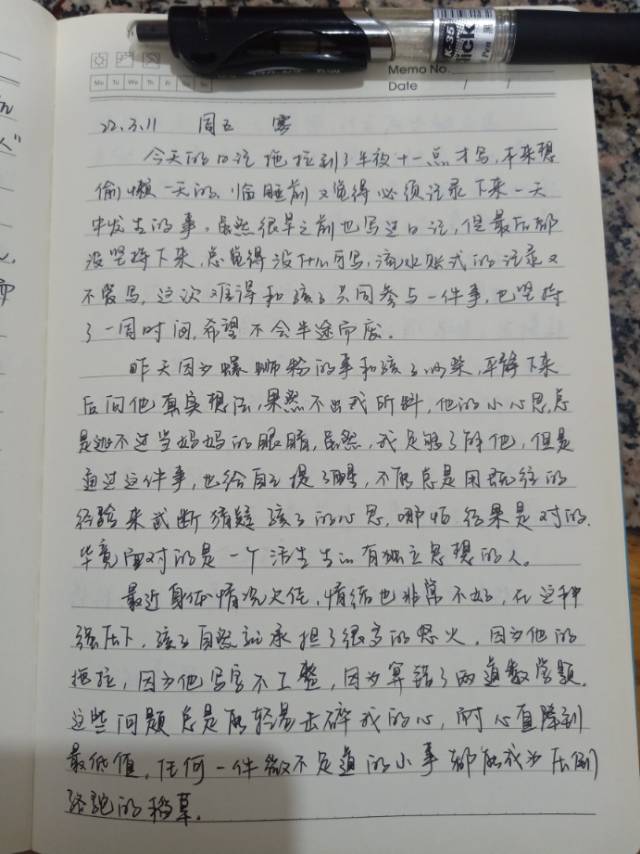 Memo No.
Date / /
Mo Tu We Th Fr Sa Su
K-35
22.3.11 周五 雾
今天的日记拖拉到了年夜十一点才写,本来想
偷懒一天的,临睡前又觉得必须记录下来一天
中发生的事。虽然很早之前也写过日记,但最后都
没坚持下来,总觉得没什么可写,流水账式的记录又
不爱写,这次难得和孩子共同参与一件事,已坚持
了一周时间,希望不会半途而废。
昨天因为螺蛳粉的事和孩子吵架,平静下来
后问他真实想法,果然不出我所料,他的小心思,总
是逃不过当妈妈的眼睛,虽然,我足够了解他,但是
通过这件事,也给自己提了醒,不能总是用既往的
经验来武断猜疑孩子的心思,哪怕结果是对的,
毕竟面对的是一个活生生的有独立思想的人。
最近身体情况欠佳,情绪也非常不好,在这种
强压下,孩子自然就承担了很多的怒火,因为他的
拖拉,因为他写字不工整,因为算错了两道数学题,
这些问题总是能轻易击碎我的心,耐心直降到
最低值,任何一件微不足道的小事都能成为压倒
骆驼的稻草。